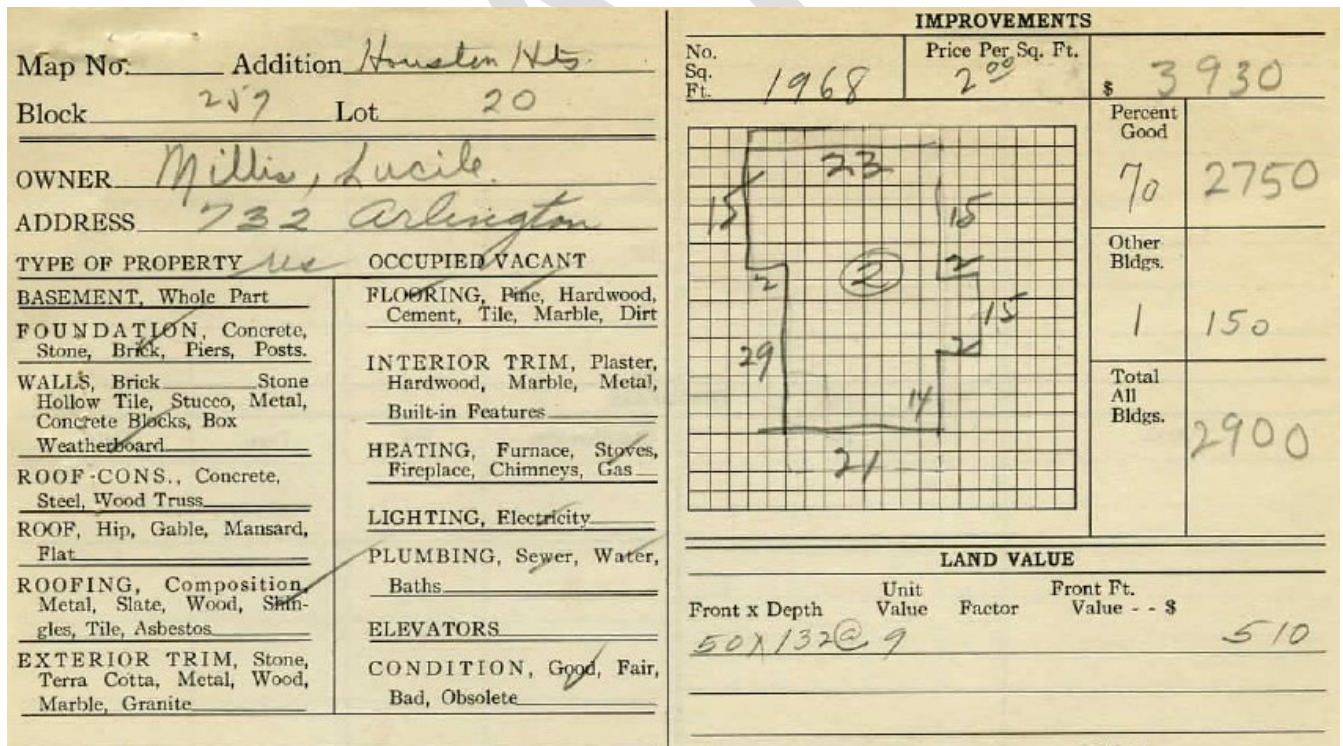 Map No. Addition Houston Hts.
Block 257 Lot 20
OWNER Millis, Lucile.
ADDRESS 732 Arlington
TYPE OF PROPERTY res OCCUPIED VACANT
BASEMENT, Whole Part
FOUNDATION, Concrete,
Stone, Brick, Piers, Posts.
WALLS, Brick Stone
Hollow Tile, Stucco, Metal,
Concrete Blocks, Box
Weatherboard
ROOF-CONS., Concrete,
Steel, Wood Truss
ROOF, Hip, Gable, Mansard,
Flat
ROOFING, Composition,
Metal, Slate, Wood, Shin-
gles, Tile, Asbestos
EXTERIOR TRIM, Stone,
Terra Cotta, Metal, Wood,
Marble, Granite
FLOORING, Pine, Hardwood,
Cement, Tile, Marble, Dirt
INTERIOR TRIM, Plaster,
Hardwood, Marble, Metal,
Built-in Features
HEATING, Furnace, Stoves,
Fireplace, Chimneys, Gas
LIGHTING, Electricity
PLUMBING, Sewer, Water,
Baths
ELEVATORS
CONDITION, Good, Fair,
Bad, Obsolete
IMPROVEMENTS
No.
Sq.
Ft. 1968
Price Per Sq. Ft.
2 00
$ 3930
Percent
Good
70 2750
Other
Bldgs.
1 150
Total
All
Bldgs.
2900
23
15 15
2 2 2
15
29 2
14
21
LAND VALUE
Front x Depth Unit Value Factor Front Ft. Value - - $
50 X 132 @ 9 510